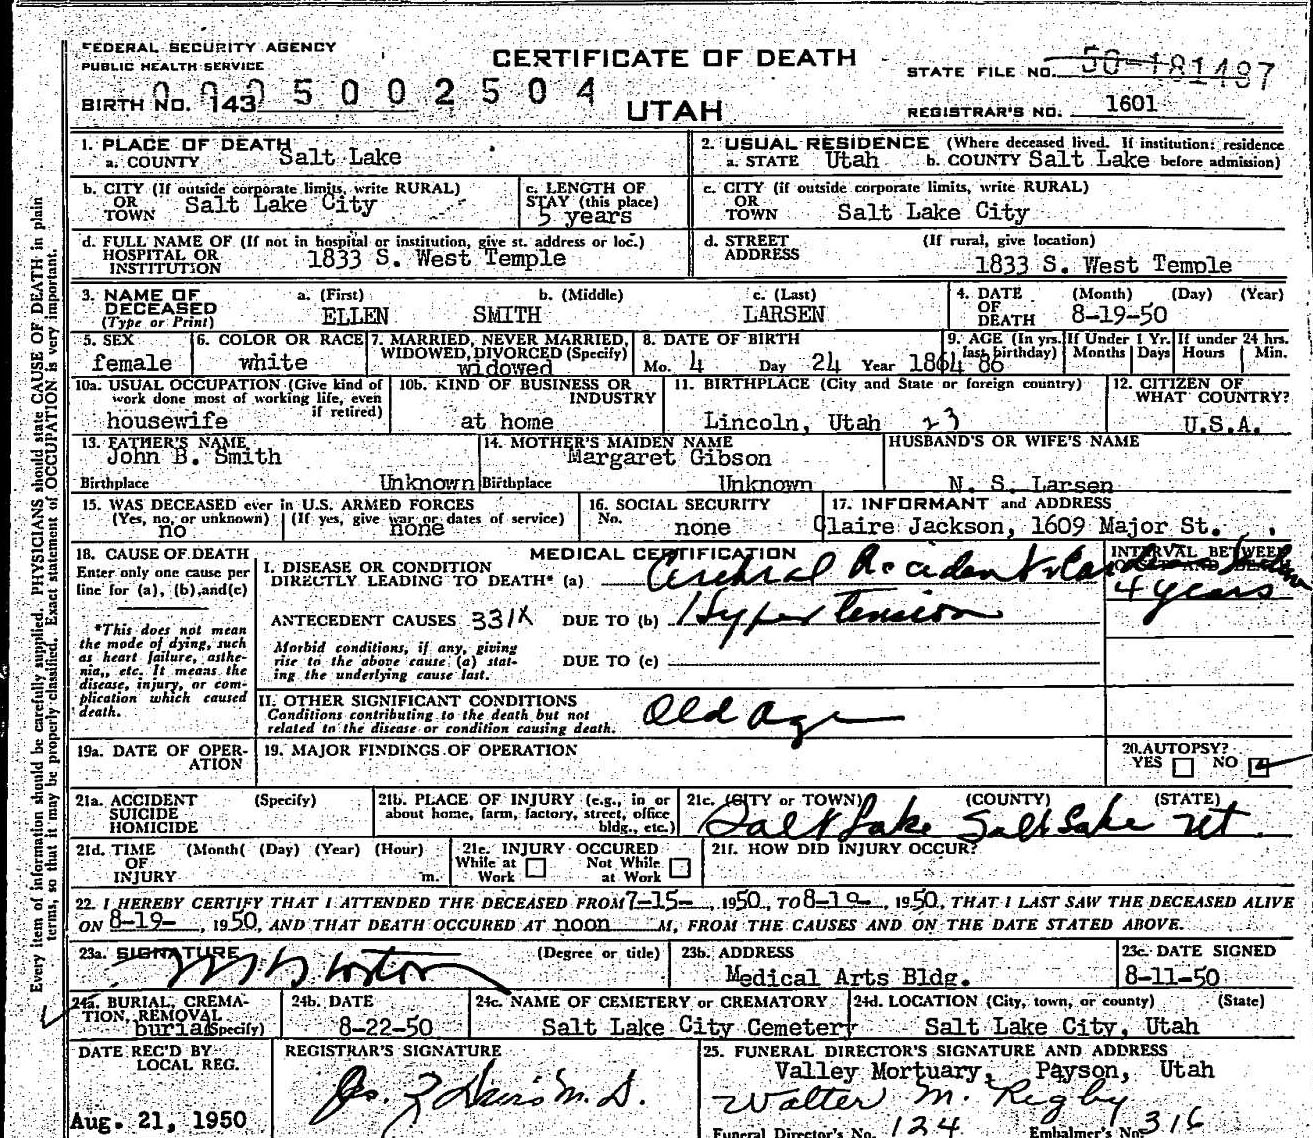 FEDERAL SECURITY AGENCY
PUBLIC HEALTH SERVICE
CERTIFICATE OF DEATH
UTAH
STATE FILE NO. 50-181487
BIRTH NO. 143
0005002504
REGISTRAR'S NO. 1601
1. PLACE OF DEATH
a. COUNTY Salt Lake
2. USUAL RESIDENCE (Where deceased lived. If institution: residence
a. STATE Utah b. COUNTY Salt Lake before admission)
b. CITY (If outside corporate limits, write RURAL)
OR
TOWN Salt Lake City
c. LENGTH OF
STAY (this place)
5 years
c. CITY (if outside corporate limits, write RURAL)
OR
TOWN Salt Lake City
d. FULL NAME OF (If not in hospital or institution, give st. address or loc.)
HOSPITAL OR
INSTITUTION 1833 S. West Temple
d. STREET (If rural, give location)
ADDRESS
1833 S. West Temple
3. NAME OF
DECEASED
(Type or Print)
a. (First) b. (Middle) c. (Last)
ELLEN SMITH LARSEN
4. DATE (Month) (Day) (Year)
OF
DEATH 8-19-50
5. SEX
female
6. COLOR OR RACE
white
7. MARRIED, NEVER MARRIED,
WIDOWED, DIVORCED (Specify)
widowed
8. DATE OF BIRTH
Mo. 4 Day 24 Year 1864
9. AGE (In yrs.
last birthday)
86
If Under 1 Yr.
Months Days
If under 24 hrs.
Hours Min.
10a. USUAL OCCUPATION (Give kind of
work done most of working life, even
if retired)
housewife
10b. KIND OF BUSINESS OR
INDUSTRY
at home
11. BIRTHPLACE (City and State or foreign country)
Lincoln, Utah 23
12. CITIZEN OF
WHAT COUNTRY?
U.S.A.
13. FATHER'S NAME
John B. Smith
Birthplace Unknown
14. MOTHER'S MAIDEN NAME
Margaret Gibson
Birthplace Unknown
HUSBAND'S OR WIFE'S NAME
N. S. Larsen
15. WAS DECEASED ever in U.S. ARMED FORCES
(Yes, no, or unknown) (If yes, give war or dates of service)
no none
16. SOCIAL SECURITY
No. none
17. INFORMANT and ADDRESS
Claire Jackson, 1609 Major St.
18. CAUSE OF DEATH
Enter only one cause per
line for (a), (b), and (c)
*This does not mean
the mode of dying, such
as heart failure, asthe-
nia,, etc. It means the
disease, injury, or com-
plication which caused
death.
MEDICAL CERTIFICATION
I. DISEASE OR CONDITION
DIRECTLY LEADING TO DEATH* (a) Cerebral Accident
INTERVAL BETWEEN
4 years
ANTECEDENT CAUSES 331X DUE TO (b) Hypertension
Morbid conditions, if any, giving
rise to the above cause (a) stat-
ing the underlying cause last.
DUE TO (c)
II. OTHER SIGNIFICANT CONDITIONS
Conditions contributing to the death but not
related to the disease or condition causing death.
Old age
19a. DATE OF OPER-
ATION
19. MAJOR FINDINGS OF OPERATION
20. AUTOPSY?
YES NO
21a. ACCIDENT (Specify)
SUICIDE
HOMICIDE
21b. PLACE OF INJURY (e.g., in or
about home, farm, factory, street, office
bldg., etc.)
21c. (CITY or TOWN) (COUNTY) (STATE)
Salt Lake Salt Lake Ut.
21d. TIME (Month( (Day) (Year) (Hour)
OF
INJURY m.
21e. INJURY OCCURED
While at Work Not While at Work
21f. HOW DID INJURY OCCUR?
22. I HEREBY CERTIFY THAT I ATTENDED THE DECEASED FROM 7-15-, 1950, TO 8-19-, 1950, THAT I LAST SAW THE DECEASED ALIVE
ON 8-19-, 1950, AND THAT DEATH OCCURED AT noon M, FROM THE CAUSES AND ON THE DATE STATED ABOVE.
23a. SIGNATURE (Degree or title)
23b. ADDRESS
Medical Arts Bldg.
23c. DATE SIGNED
8-11-50
24a. BURIAL, CREMA-
TION, REMOVAL
burial (Specify)
24b. DATE
8-22-50
24c. NAME OF CEMETERY or CREMATORY
Salt Lake City Cemetery
24d. LOCATION (City, town, or county) (State)
Salt Lake City, Utah
DATE REC'D BY
LOCAL REG.
Aug. 21, 1950
REGISTRAR'S SIGNATURE
M.D.
25. FUNERAL DIRECTOR'S SIGNATURE AND ADDRESS
Valley Mortuary, Payson, Utah
Walter M. Rigby
Funeral Director's No. 124 Embalmer's No. 316
Every item of information should be carefully supplied. PHYSICIANS should state CAUSE OF DEATH in plain
terms, so that it may be properly classified. Exact statement of OCCUPATION is very important.